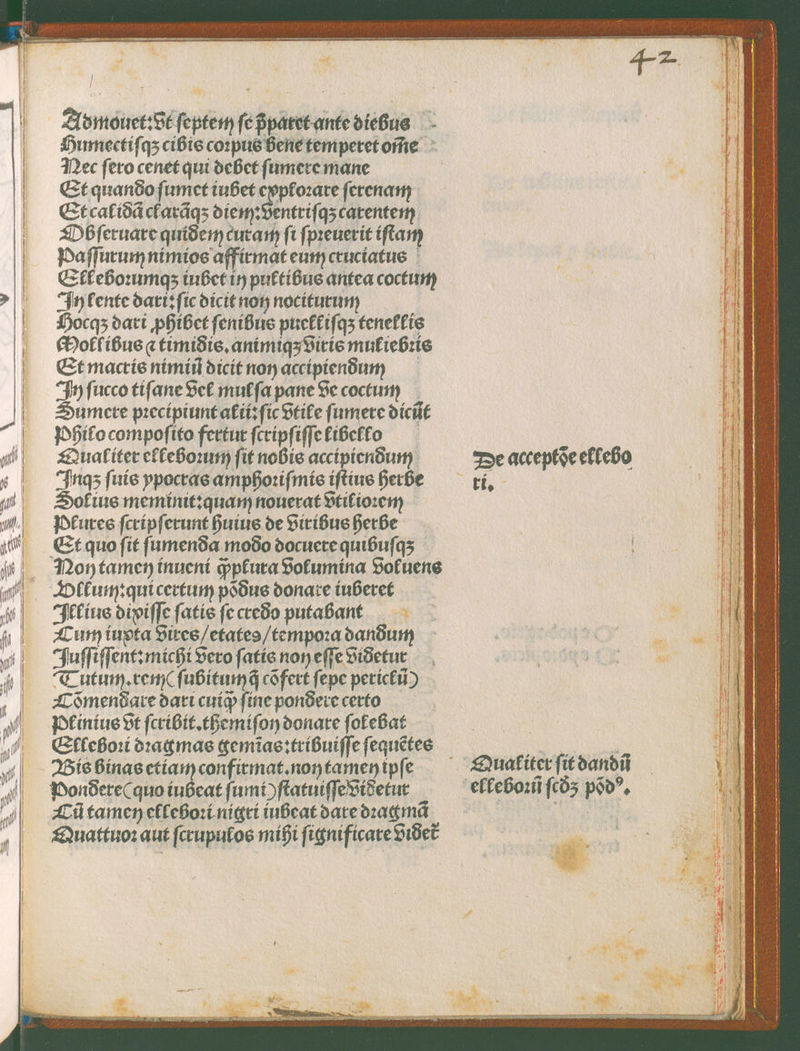 42
Admouet:Vt ſeptem ſe p̄paret ante diebus
Humectiſqꝫ cibis coꝛpus bene temperet om̄e
Nec ſero cenet qui debet ſumere mane
Et quando ſumet iubet exploꝛare ſerenam
Et calidã clarãqꝫ diem:Ventriſqꝫ carentem
Obſeruare quidem curam ſi ſpꝛeuerit iſtam
Paſſurum nimios affirmat eum cruciatus
Elleboꝛumqꝫ iubet in pultibus antea coctum
In lente dari:ſic dicit non nociturum
Hocqꝫ dari ꝓhibet ſenibus puelliſqꝫ tenellis
Mollibus ⁊ timidis. animiqꝫ Viris muliebꝛis
Et macris nimiũ dicit non accipiendum
In ſucco tiſane Vel mulſa pane Ve coctum
Sumere pꝛecipiunt alii:ſic Vtile ſumere dicũt
Philo compoſito fertur ſcripſiſſe libello
Qualiter elleboꝛum ſit nobis accipiendum
De acceptõe ellebo
ri.
Inqꝫ ſuis ypocras amphoꝛiſmis iſtius herbe
Solius meminit:quam nouerat Vtilioꝛem
Plures ſcripſerunt huius de Viribus herbe
Et quo ſit ſumenda modo docuere quibuſqꝫ
Non tamen inueni ꝙ̃plura Volumina Voluens
Vllum:qui certum põdus donare iuberet
Illius dixiſſe ſatis ſe credo putabant
Cum iuxta Vires/etates/tempoꝛa dandum
Iuſſiſſent:michi Vero ſatis non eſſe Videtur
Tutum.rem(ſubitum q̃ cõfert ſepe periclũ)
Cõmendare dari cuiꝙ̃ ſine pondere certo
Plinius Vt ſcribit.themiſon donare ſolebat
Elleboꝛi dꝛagmas gemĩas:tribuiſſe ſequẽtes
Bis binas etiam confirmat.non tamen ipſe
Qualiter ſit dandũ
elleboꝛũ ſcd̃ꝫ põdꝰ.
Pondere(quo iubeat ſumi)ſtatuiſſe Videtur
Cũ tamen elleboꝛi nigri iubeat dare dꝛagmã
Quattuoꝛ aut ſcrupulos mihi ſignificare Videt̃